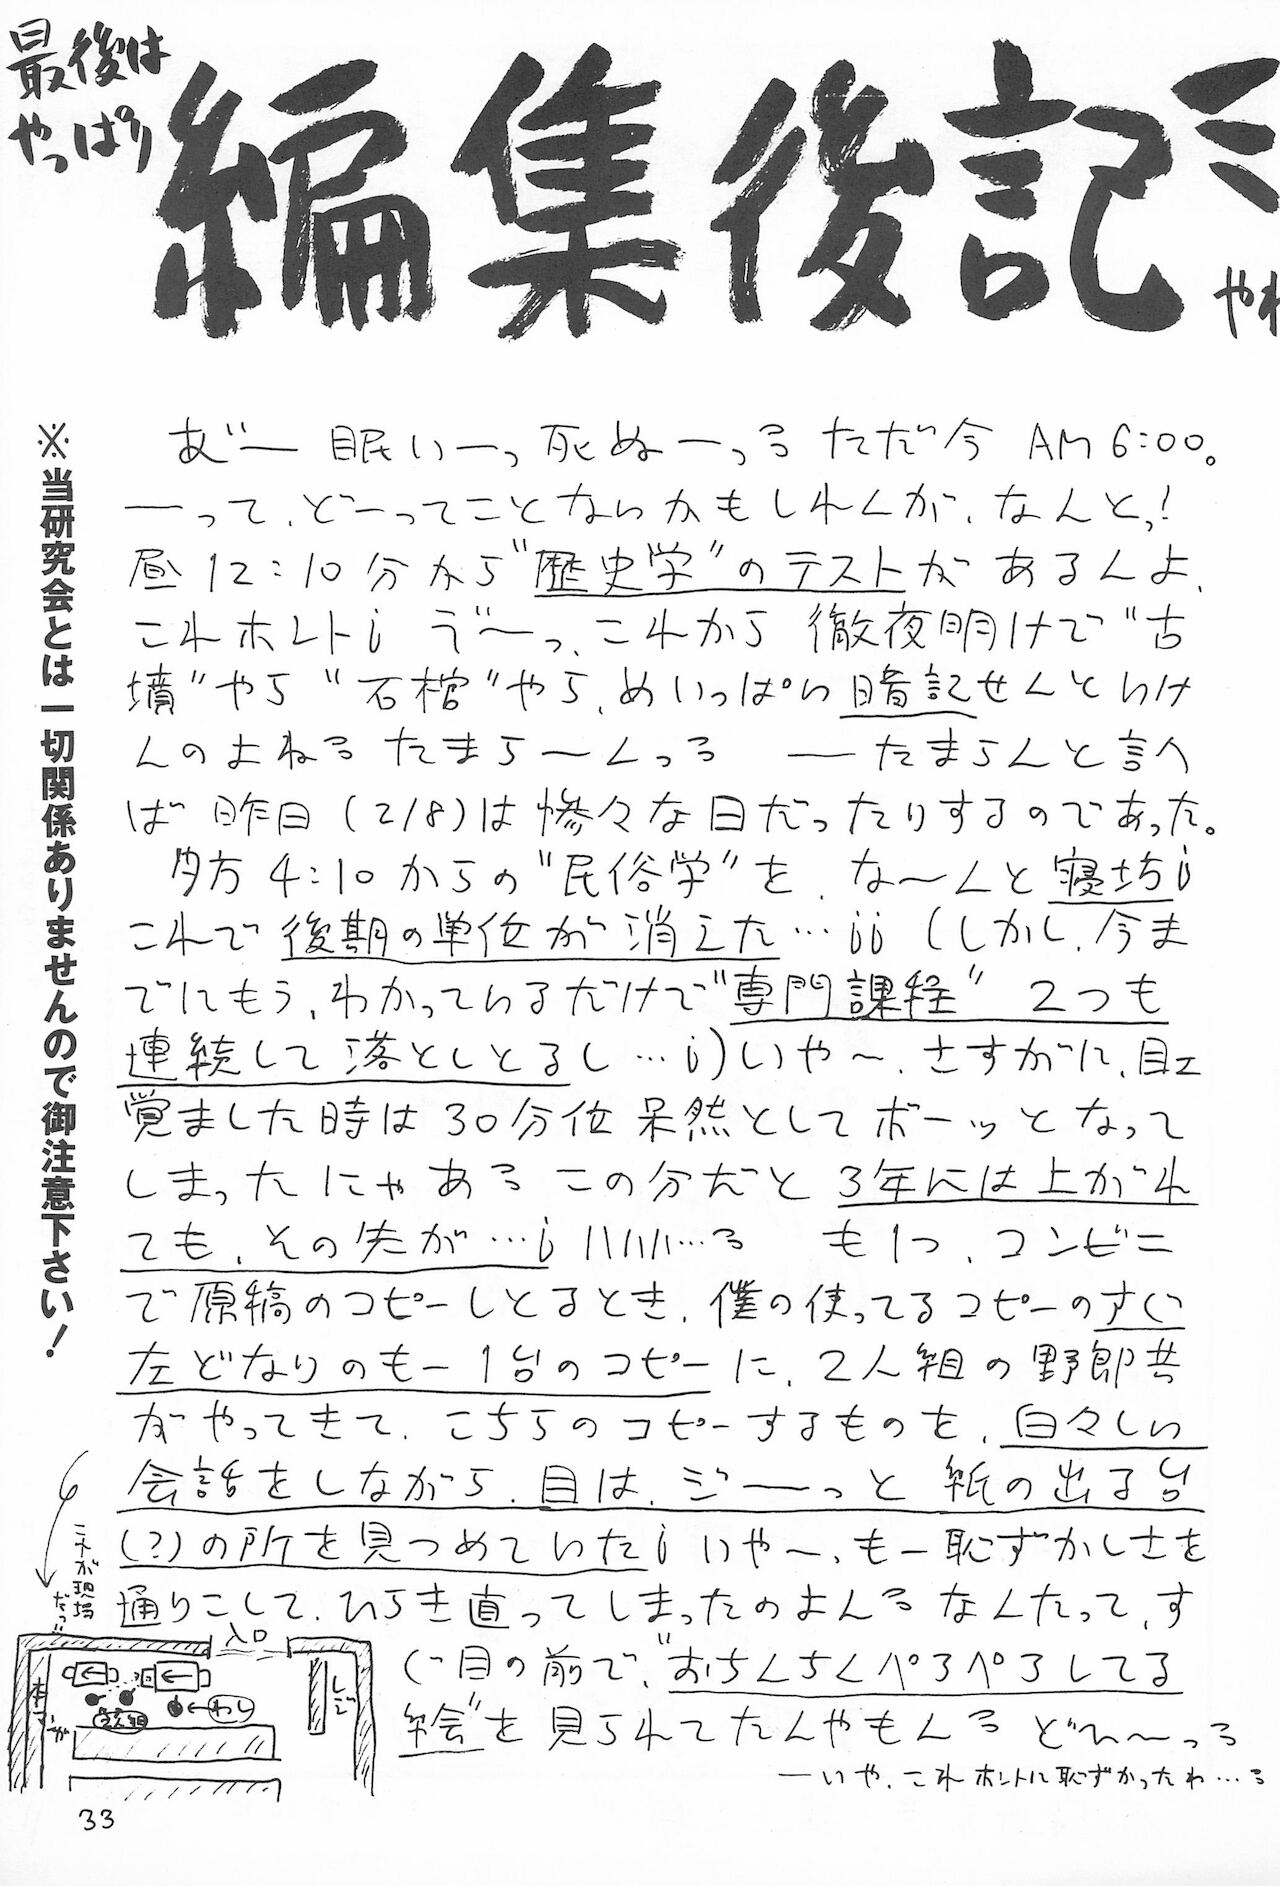 最後は
やっぱり
編集後記ミ
やわ
※当研究会とは一切関係ありませんので御注意下さい!
あ゛〜 眠いーっ死ぬーっろ ただ今 AM 6:00。
―って、どーってことないかもしれんが、なんとっ!
昼12:10分から“歴史学”のテストがあるんよ、
これホントi う゛〜っ、これから 徹夜明けで“古
墳”やら“石棺”やら、めいっぱい暗記せんといけ
んのよねろ たまら〜んっろ ―たまらんと言へ
ば 昨日 (2/8)は惨々な日だったりするのであった。
夕方 4:10からの“民俗学”を、な〜んと寝坊i
これで後期の単位が消えた…ii (しかし、今ま
でにもう、わかっているだけで“専門課程” 2つも
連続して落としとるし…i)いや〜、さすがに、目エ
覚ました時は30分位呆然としてボーッとなって
しまったにゃあろ この分だと3年には上がれ
ても、その先が…i ハハハハ…ろ も1つ、コンビニ
で原稿のコピーしとるとき、僕の使ってるコピーのすぐ
左どなりのもー1台のコピーに、2人組の野郎共
がやってきて、こちらのコピーするものを、白々しい
会話をしながら、目は、ジ――っと紙の出る台
(?)の所を見つめていたi いや〜、もー恥ずかしさを
通りこして、ひらき直ってしまったのよんろ なんたって、す
ぐ目の前で、“おちんちんペろペろしてる
絵”を見られてたんやもんろ どひ〜っろ
―いや、これホントに恥ずかったわ…ろ
これが現場
だっ
入口
本
マンガ
わし
レジ
33